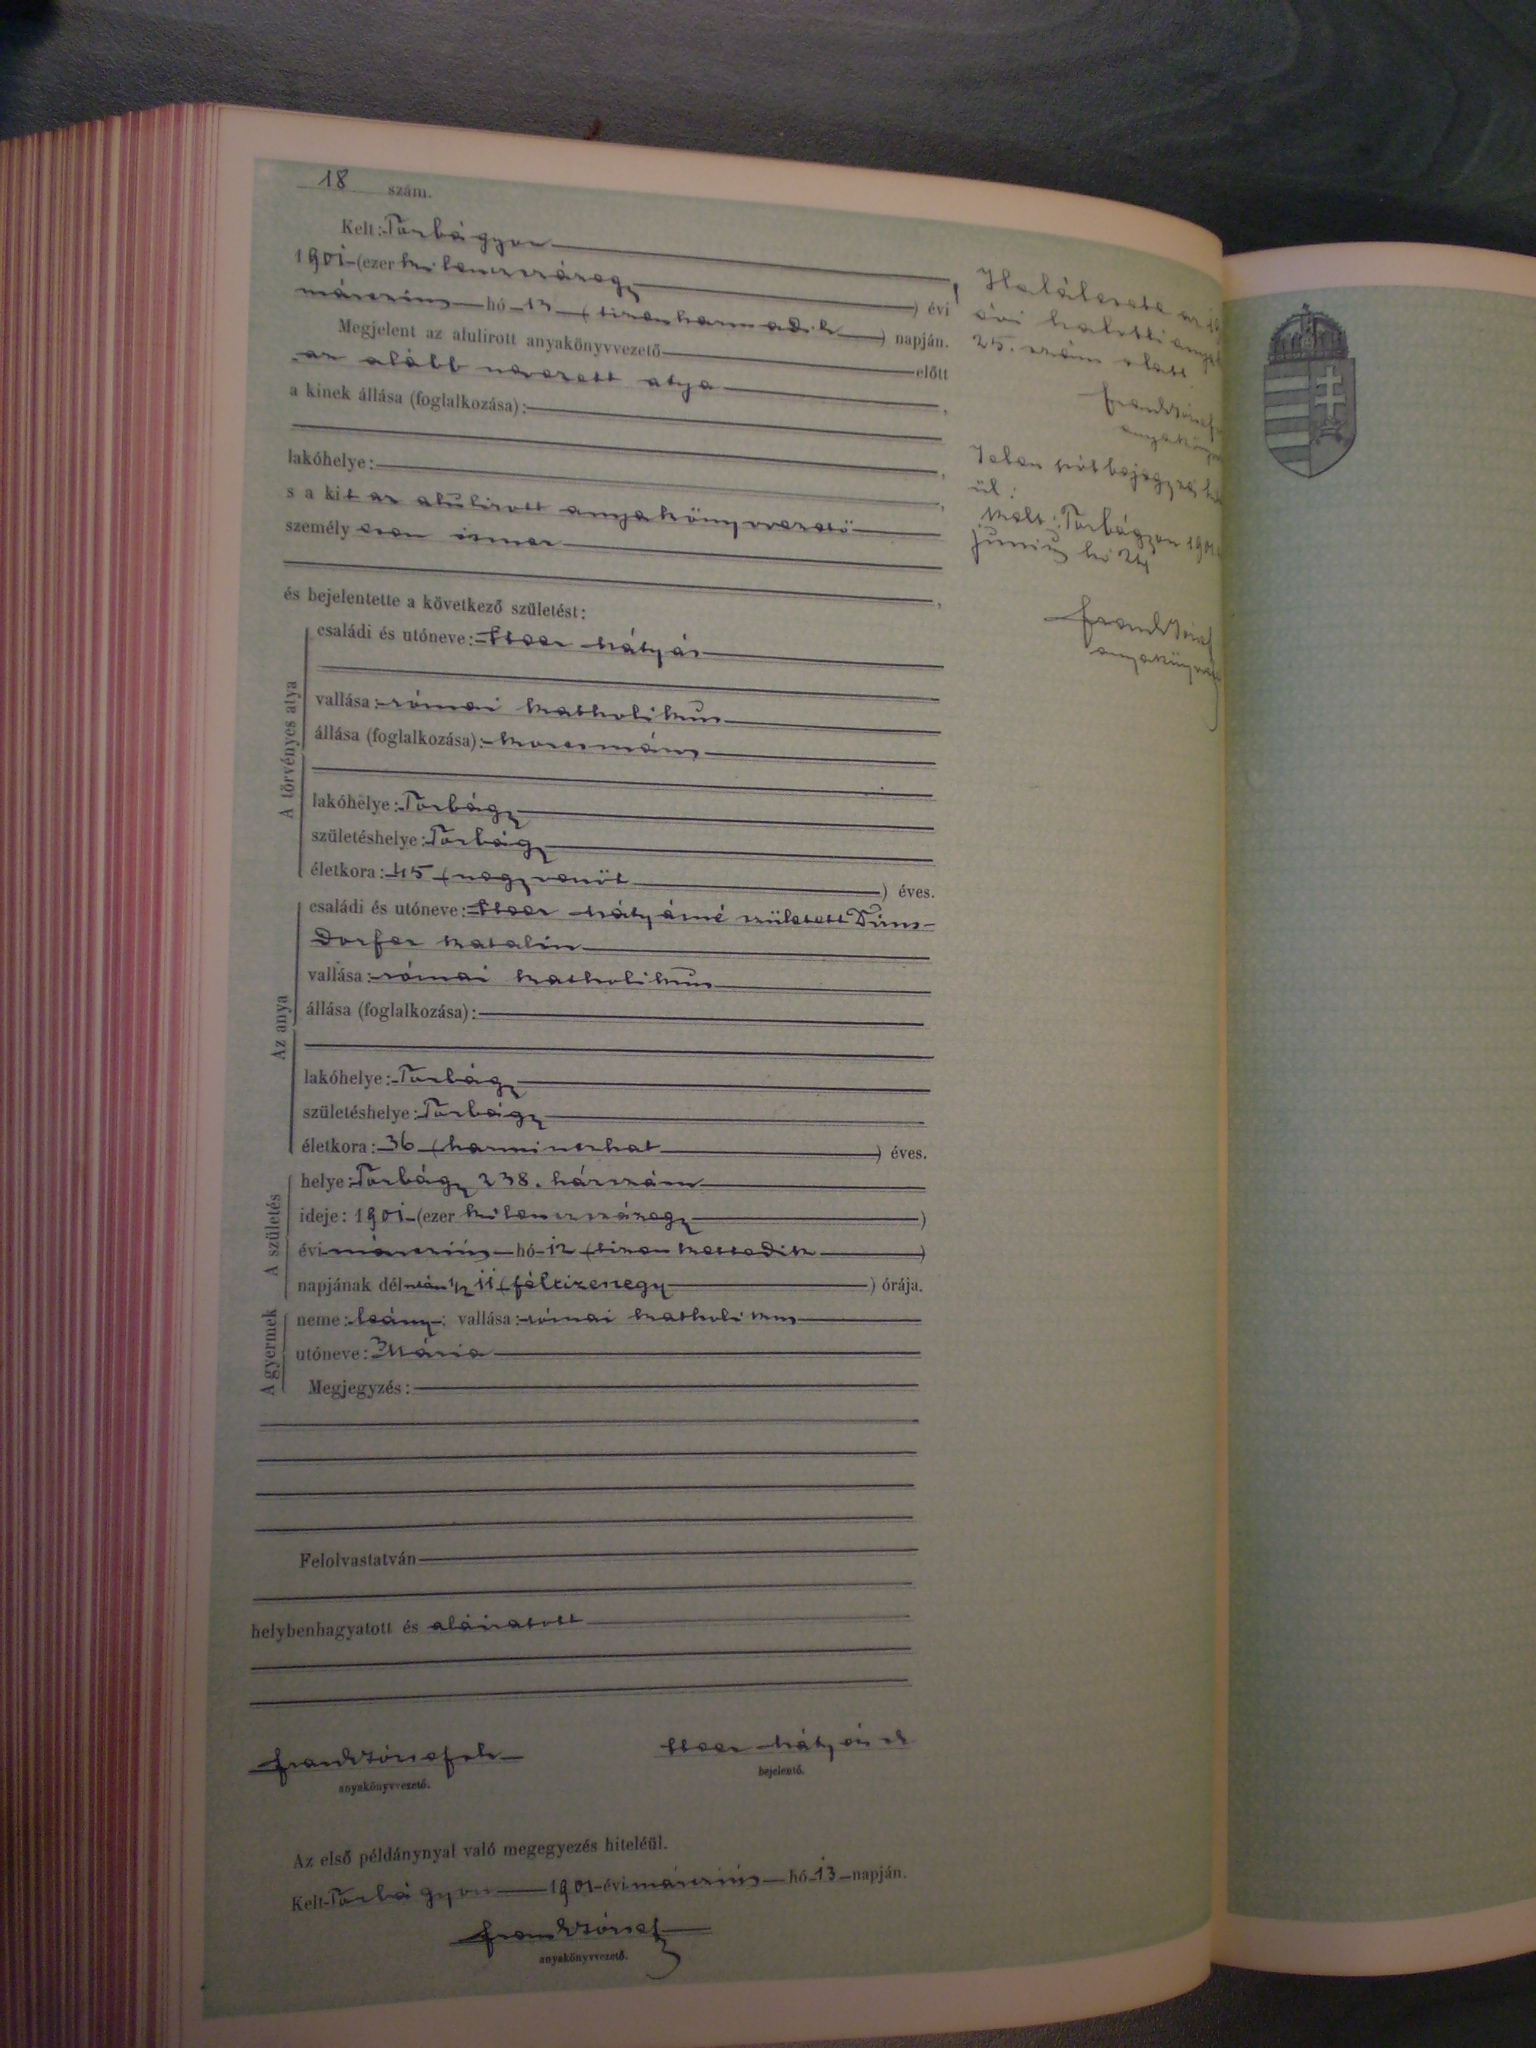 18 szám.
Kelt: Torbágyon
1901 (ezer kilenczszázegy) évi
márczius hó 13 (tizenharmadik) napján.
Megjelent az alulirott anyakönyvvezető előtt
az alább nevezett atya,
a kinek állása (foglalkozása):
lakóhelye:
s a kit az alulirott anyakönyvvezető
személyesen ismer
és bejelentette a következő születést:
A törvényes atya
családi és utóneve: Mátyás
vallása: római katholikus
állása (foglalkozása): korcsmáros
lakóhelye: Torbágy
születéshelye: Torbágy
életkora: 45 (negyvenöt) éves.
Az anya
családi és utóneve: Mátyásné született
dorfer Katalin
vallása: római katholikus
állása (foglalkozása):
lakóhelye: Torbágy
születéshelye: Torbágy
életkora: 36 (harminczhat) éves.
A születés
helye: Torbágy 238. házszám
ideje: 1901 (ezer kilenczszázegy)
évi márczius hó 12 (tizenkettedik)
napjának délután 1/2 11 (féltizenegy) órája.
A gyermek
neme: leány; vallása: római katholikus
utóneve: Mária
Megjegyzés:
Felolvastatván
helybenhagyatott és aláiratott
Frank József sk
anyakönyvvezető.
Mátyás sk
bejelentő.
Az első példánynyal való megegyezés hiteléül.
Kelt Torbágyon 1901 évi márczius hó 13 napján.
Frank József
anyakönyvvezető.
Halálesete az
évi halotti
25. szám alatt
Frank József
Jelen utóbejegyzés
ül:
Kelt: Torbágyon 1901
junius hó 24
Frank József